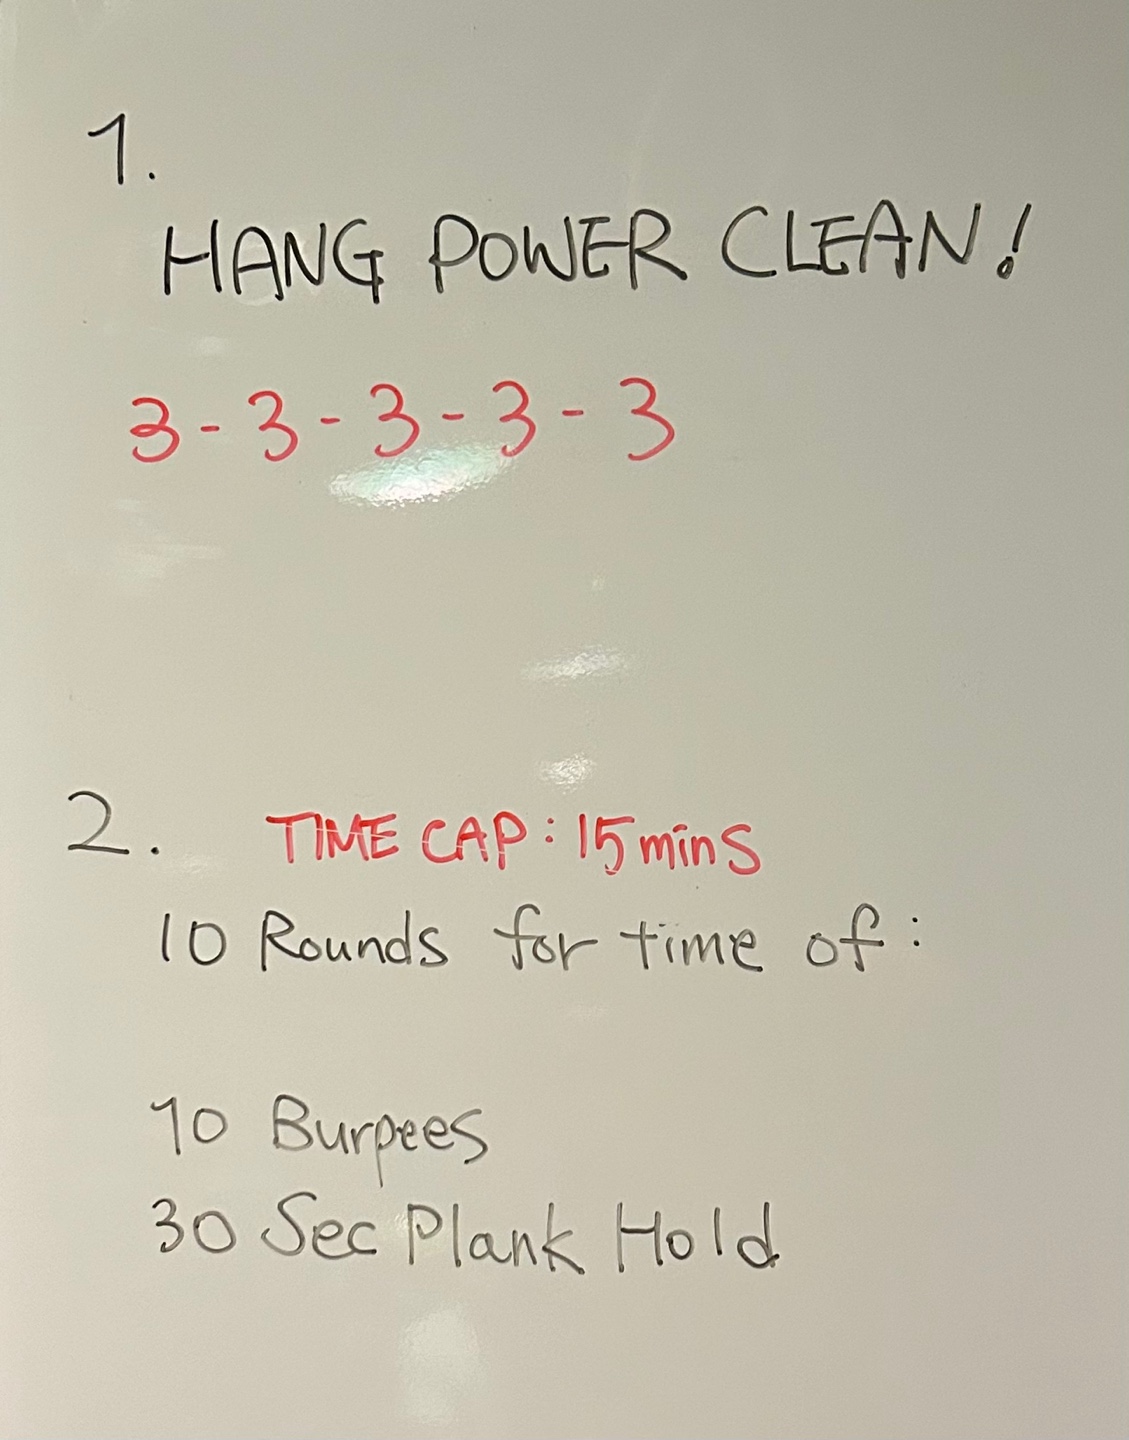 1.
HANG POWER CLEAN!
3-3-3-3-3
2. TIME CAP: 15 mins
10 Rounds for time of:
10 Burpees
30 Sec Plank Hold